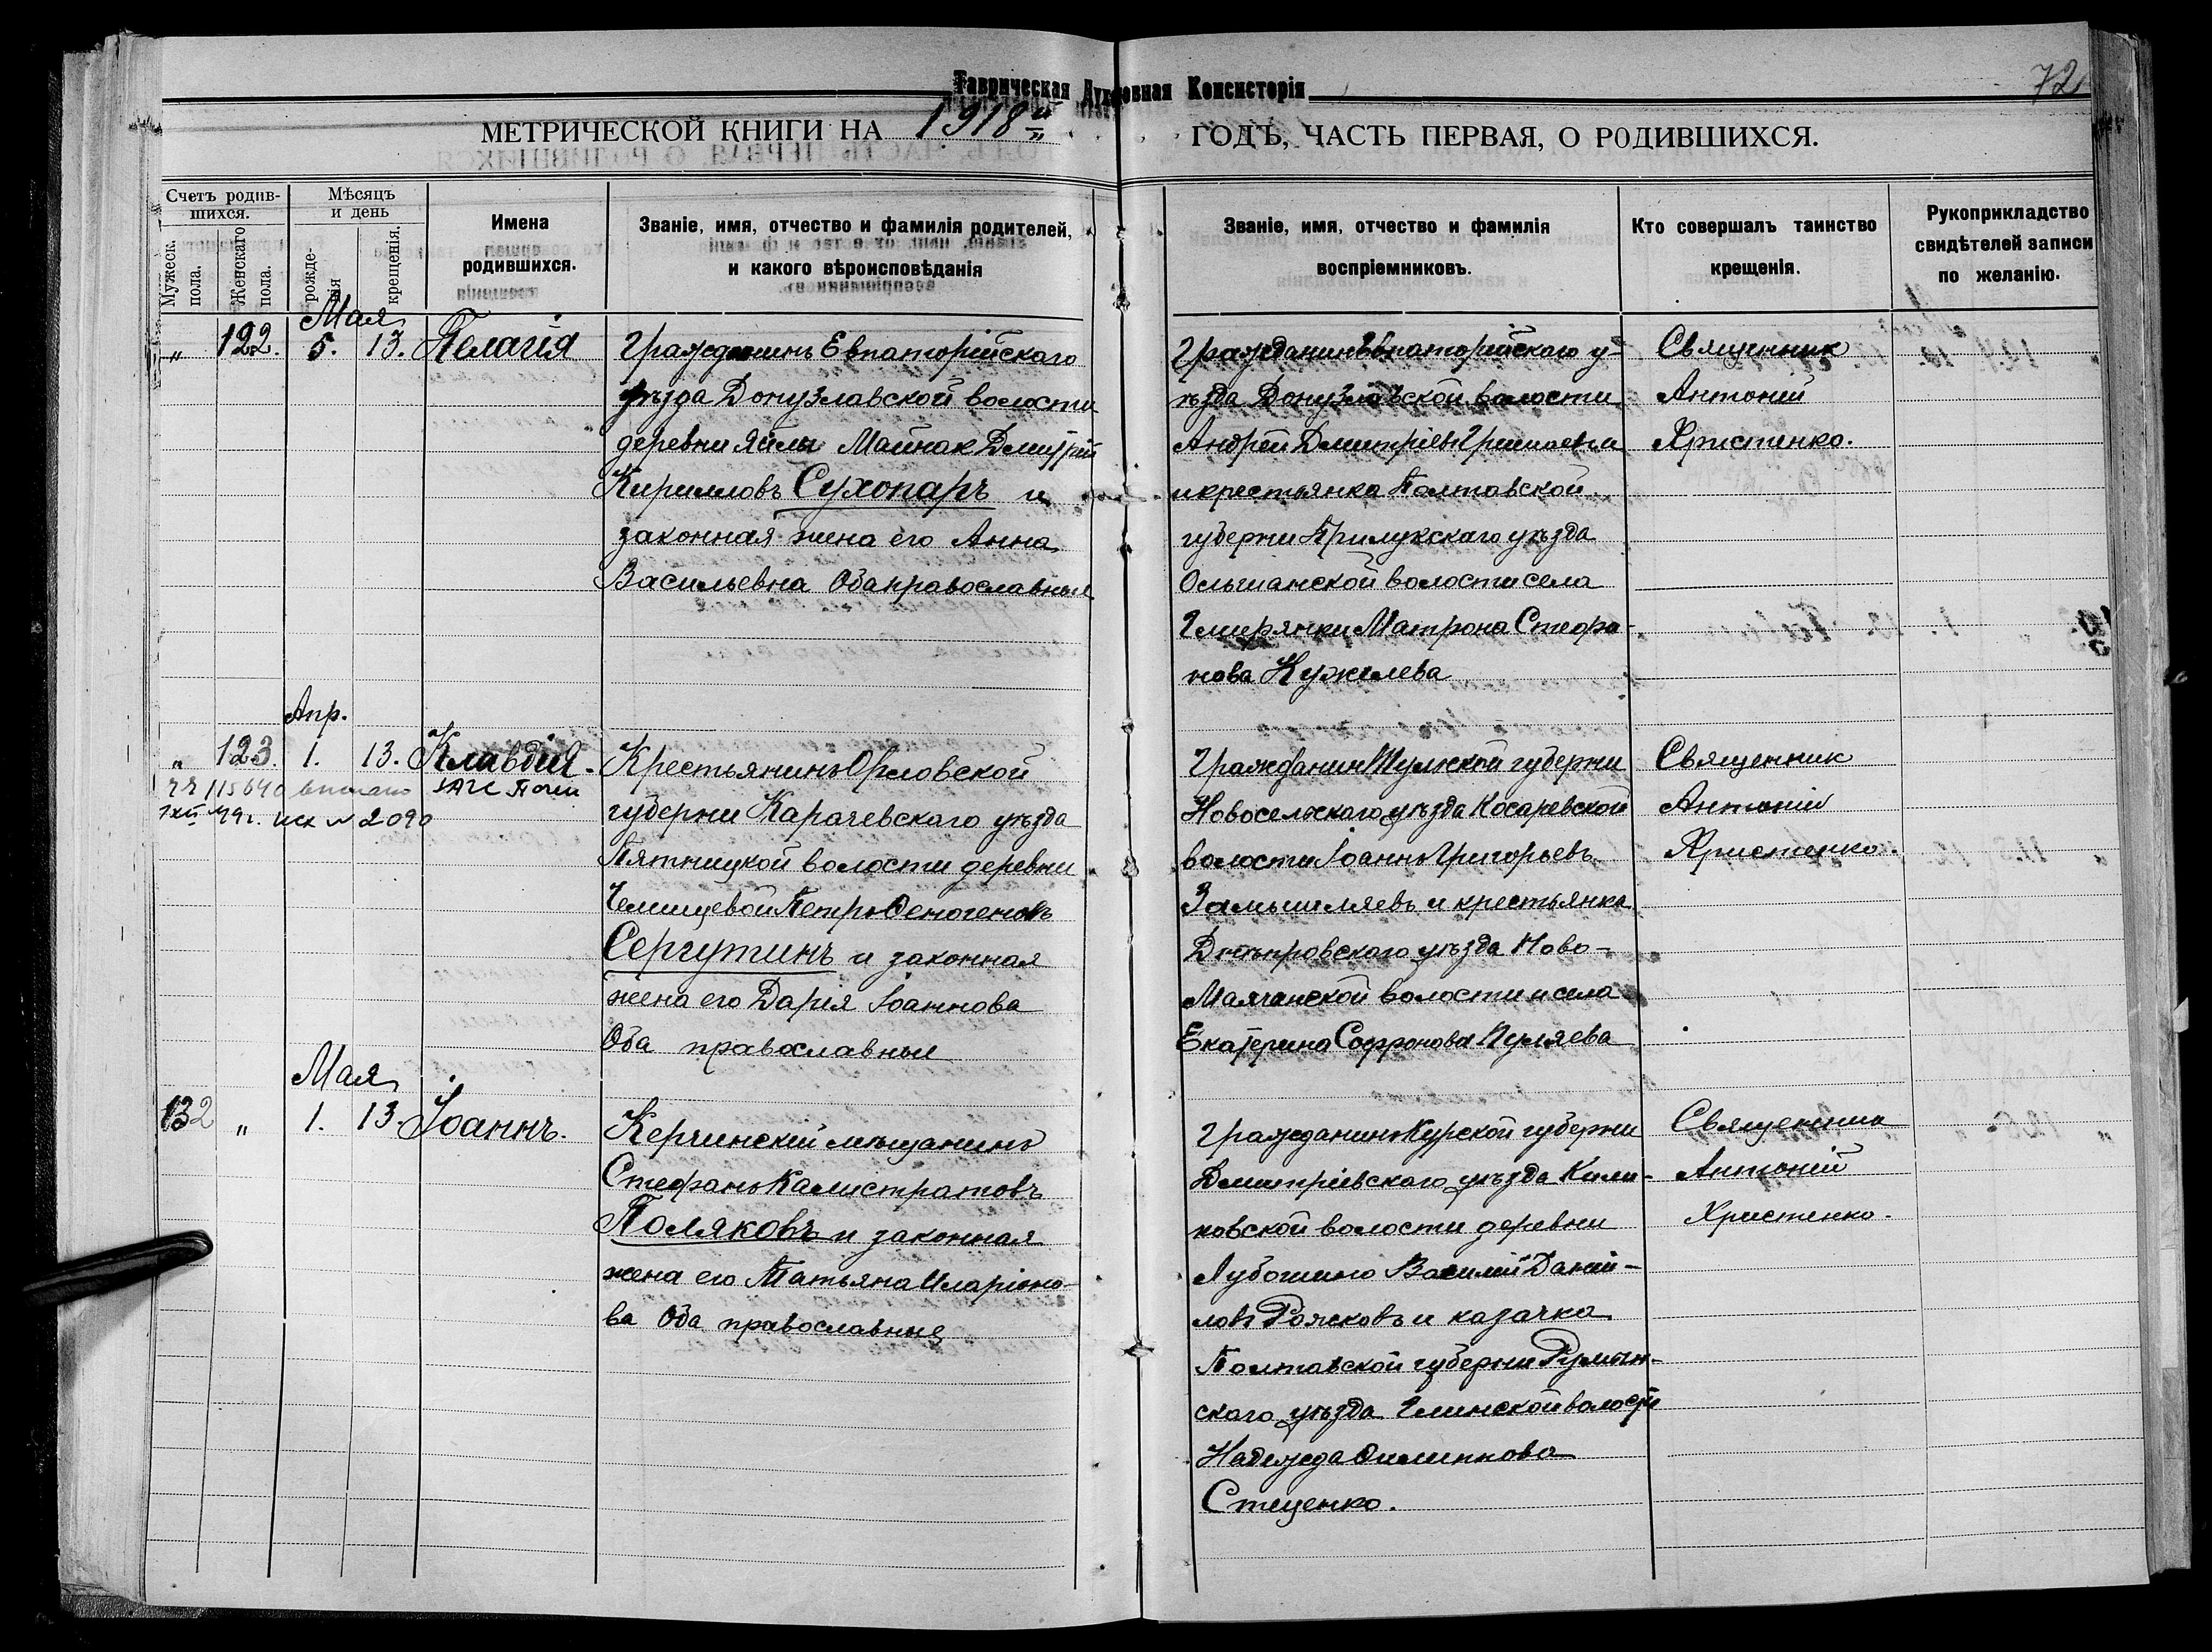 Таврическая Духовная Консисторія
72
МЕТРИЧЕСКОЙ КНИГИ НА 1918й ГОДЪ, ЧАСТЬ ПЕРВАЯ, О РОДИВШИХСЯ.
Счетъ родив-
шихся.
Мужеск. пола.
Женскаго пола.
Мѣсяцъ
и день
рожде-
нія
крещенія.
Имена
родившихся.
Званіе, имя, отчество и фамилія родителей,
и какого вѣроисповѣданія
Званіе, имя, отчество и фамилія
воспріемниковъ.
Кто совершалъ таинство
крещенія.
Рукоприкладство
свидѣтелей записи
по желанію.
Мая
" 122. 5. 13. Пелагія
Гражданинъ Евпаторійскаго
уѣзда Донузлавской волости
деревни Яйлы Майнак Дмитрій
Кирилловъ Сухопаръ и
законная жена его Анна
Васильевна Оба православные
Гражданинъ Евпаторійскаго у-
ѣзда Донузлавской волости
Андрей Дмитріевъ
и крестьянка Полтавской
губерни Прилукскаго уѣзда
Ольшанской волости села
Гмирянки Матрона Стефа-
нова Кужелева
Священник
Антоній
Христенко.
Апр.
" 123. 1. 13. Клавдія.
115640 ЗАГС
49г. исх № 2090
Крестьянинъ Орловской
губерни Карачевскаго уѣзда
Пятницкой волости деревни
Челищевой Петръ
Сергутинъ и законная
жена его Дарія Іоаннова
Оба православные
Гражданин Тульской губерни
Новосельскаго уѣзда Косаревской
волости Іоаннъ Григорьевъ
Замышляевъ и крестьянка
Днѣпровскаго уѣзда Ново-
Маячанской волости и села
Екатерина Софронова Пуляева
Священник
Антоній
Христенко.
Мая
132 " 1. 13. Іоаннъ.
Керчинскій мѣщанинъ
Стефанъ Калистратовъ
Поляковъ и законная
жена его Татьяна Иларіоно-
ва Оба православные
Гражданинъ Курской губерни
Дмитріевскаго уѣзда Кили-
ковской волости деревни
Лубошино Василій Даніи-
ловъ и казачка
Полтавской губерни
скаго уѣзда Глинской волости
Надежда Филиппова
Стеценко.
Священник
Антоній
Христенко.